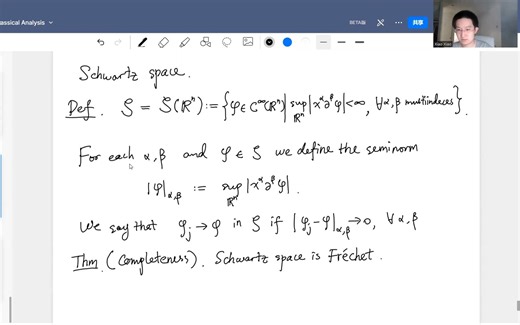 lassical Analysis
BETA版
共享
Schwartz space.
Def. S = S(ℝⁿ) := {φ ∈ C^∞(ℝⁿ) | sup_{ℝⁿ} |x^α ∂^β φ| < ∞, ∀ α, β multiindeces}.
For each α, β and φ ∈ S we define the seminorm
|φ|_{α,β} := sup_{ℝⁿ} |x^α ∂^β φ|.
We say that φ_j → φ in S if |φ_j − φ|_{α,β} → 0, ∀ α, β
Thm (Completeness). Schwartz space is Fréchet.